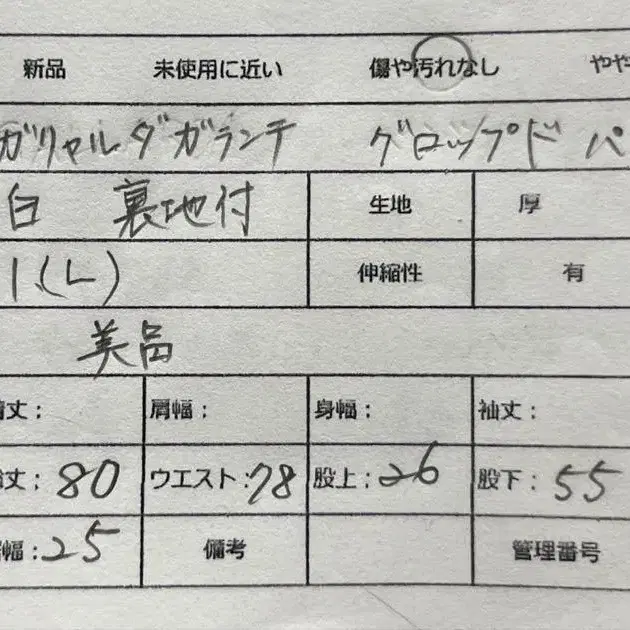 新品 未使用に近い 傷や汚れなし やや
ガリャルダガランテ グロップド パ
白 裏地付 生地 厚
1.(L) 伸縮性 有
美品
着丈: 肩幅: 身幅: 袖丈:
総丈; 80 ウエスト:78 股上:26 股下: 55
幅:25 備考 管理番号